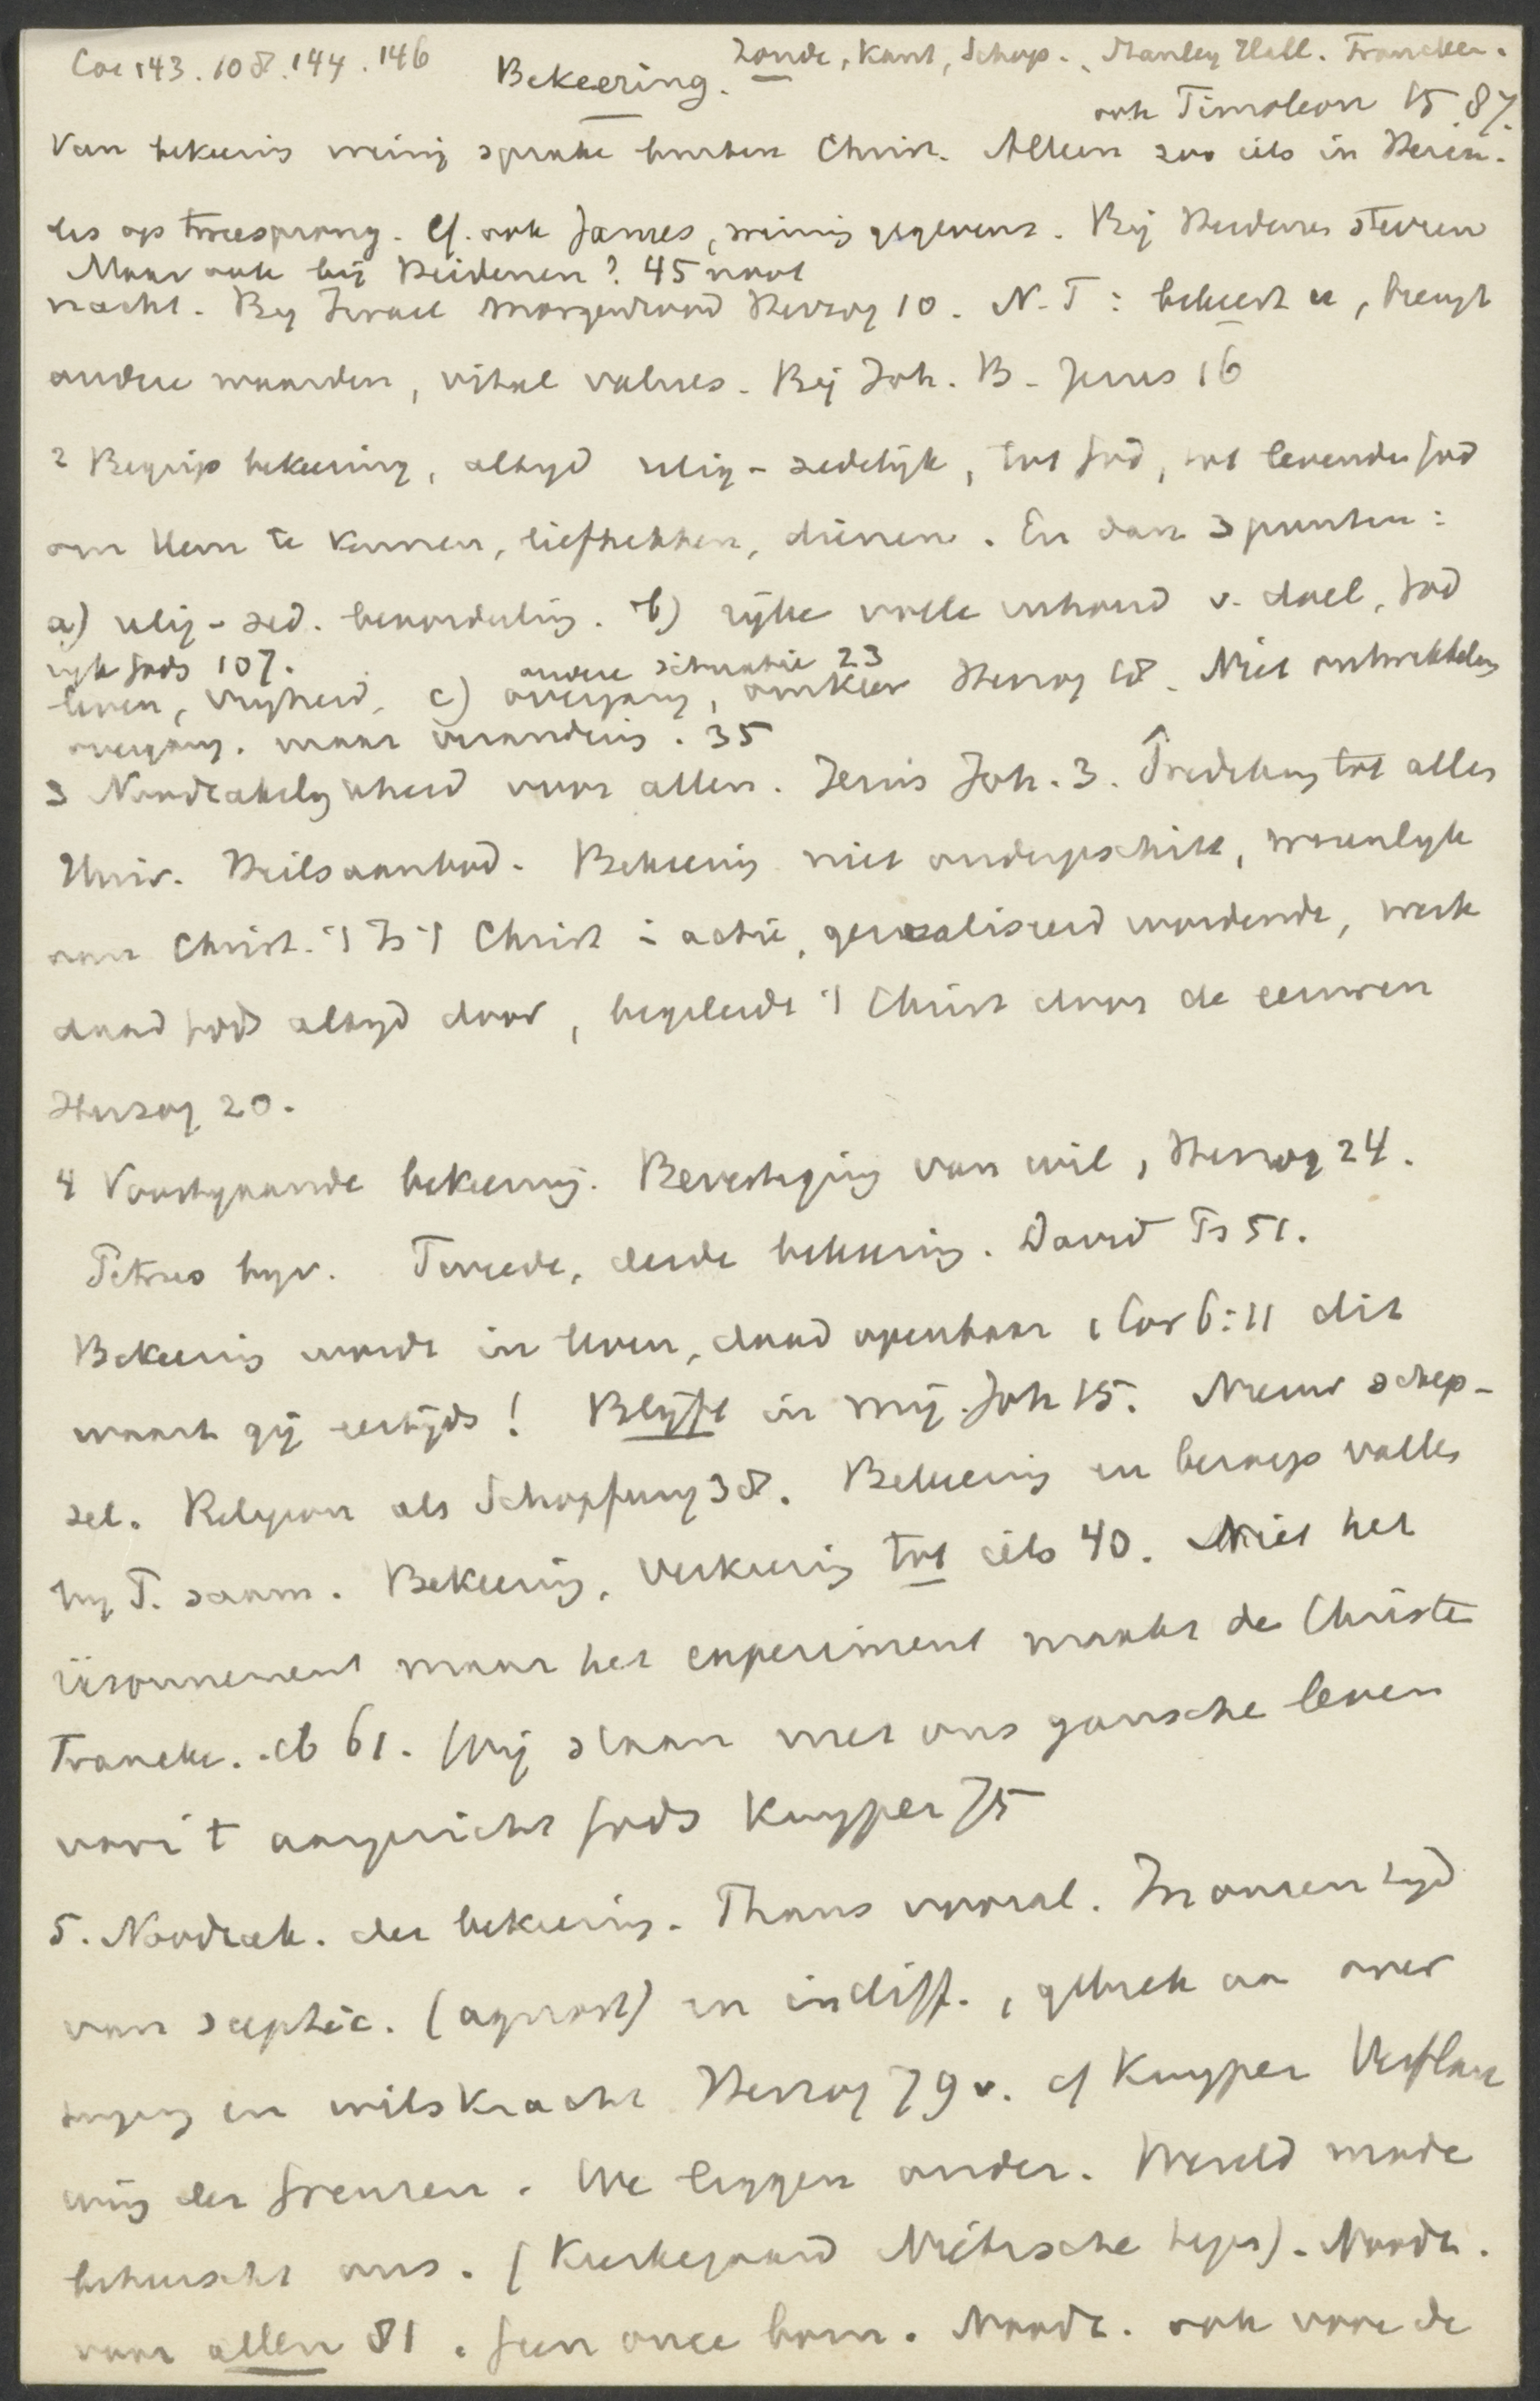 Coe 143. 108. 144. 146
Bekeering.
Zonde, Kant, Schop., Stanley Hall. Francken.
ook Timoleon 15. 87.
Van bekeering weinig sprake buiten Christ. Alleen zoo iets in Hercu-
les op tweesprong. Cf. ook James, weinig gegevens. Bij Heidenen sterren
Maar ook bij Heidenen? 45 noot
nacht. Bij Israel morgenrood Herzog 10. N.T: bekeert u, brengt
andere waarden, vital values. Bij Joh. B. Jezus 16
2 Begrip bekeering, altijd relig-zedelijk, tot God, tot levenden God
om Hem te kennen, liefhebben, dienen. En dan 3 punten:
a) relig-zed. beoordeling. b) rijke volle inhoud v. doel, God
rijk Gods 107. andere situatie 23
leven, vrijheid. c) overgang, omkeer Herzog 18. Niet ontwikkeling
overgang. maar verandering. 35
3 Noodzakelijkheid voor allen. Jezus Joh. 3. Prediking tot allen
Univ. Heilsaanbod. Bekeering niet ondergeschikt, wezenlijk
aan Christ. 't Is 't Christ in actie, gerealiseerd wordende, werk
daad Gods altijd door, begeleidt 't Christ door de eeuwen
Herzog 20.
4 Voortgaande bekeering. Bevestiging van wil, Herzog 24.
Petrus bijv. Tweede, derde bekeering. David Ps 51.
Bekeering worde in leven, daad openbaar 1 Cor 6:11 dit
waart gij eertijds! Blijft in mij. Joh 15. Nieuw schep-
sel. Religion als Schopfung 38. Bekeering en beroep vallen
bij P. saam. Bekeering, verkeering tot iets 40. Niet het
raisonnement maar het experiment maakt de Christen
Francke. 61. Wij staan met ons gansche leven
voor 't aangezicht Gods Kuyper 75
5. Noodzak. der bekeering. Thans vooral. In onzen tijd
van sceptic. (agnost) en indiff., gebrek aan over
tuiging en wilskracht Herzog 79 v. cf Kuyper Verflau
wing der Grenzen. We liggen onder. Wereld mode
beheerscht ons. (Kierkegaard Nietzsche tegen). Noodz.
voor allen 81. Geen once born. Noodz. ook voor de